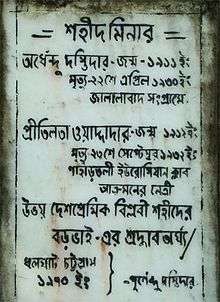 শহীদ মিনার
অর্ধেন্দু দস্তিদার - জন্ম - ১৯১১ ইং
মৃত্যু - ২২শে এপ্রিল ১৯৩০ ইং
জালালাবাদ সংগ্রামে
প্রীতিলতা ওয়াদ্দাদার - জন্ম ১৯১১ ইং
মৃত্যু - ২৩শে সেপ্টেম্বর ১৯৩২ ইং
পাহাড়তলী ইউরোপিয়ান ক্লাব
আক্রমনের নেত্রী
উভয় দেশপ্রেমিক বিপ্লবী শহীদের
বড়ভাই - এর শ্রদ্ধার্ঘ্য/
ধলঘাট চট্টগ্রাম
১৯৭০ ইং } - পূর্ণেন্দু দস্তিদার